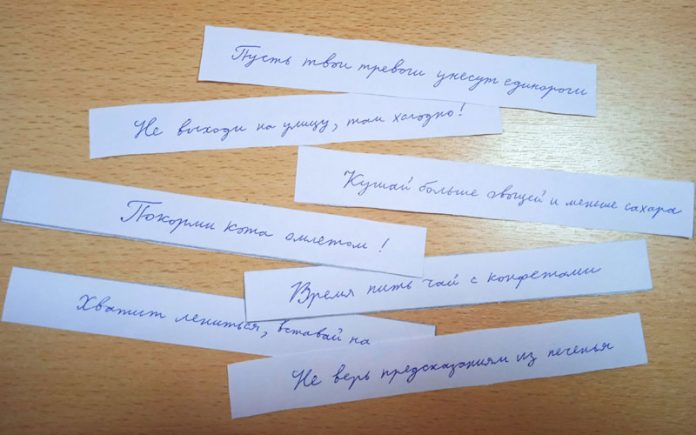 Пусть твои тревоги унесут единороги
Не выходи на улицу, там холодно!
Кушай больше овощей и меньше сахара
Покорми кота омлетом!
Время пить чай с конфетами
Хватит лениться, вставай на
Не верь предсказаниям из печенья